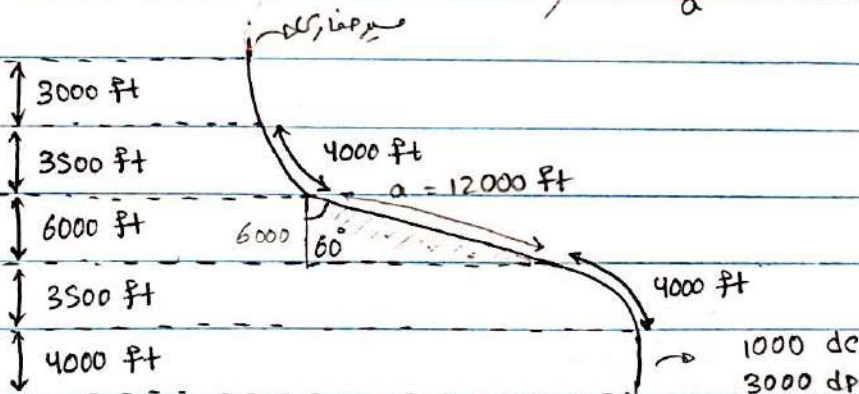 a
مسیر حفاری
3000 ft
3500 ft
4000 ft
a = 12000 ft
6000 ft
6000
60°
4000 ft
3500 ft
4000 ft
1000 dc
3000 dp